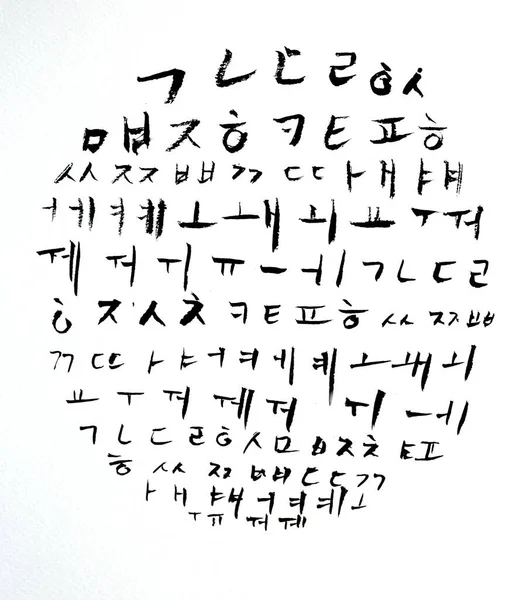 ㄱ ㄴ ㄷ ㄹ ㅎ ㅅ
ㅁ ㅂ ㅈ ㅎ ㅋ ㅌ ㅍ ㅎ
ㅆ ㅉ ㅃ ㄲ ㄷㄷ ㅏ ㅐ ㅑ ㅒ
ㅓ ㅔ ㅕ ㅖ ㅗ ㅙ ㅚ ㅛ ㅜ ㅝ
ㅞ ㅝ ㅟ ㅠ ㅡ ㅔ ㅣ ㄱ ㄴ ㄷ ㄹ
ㅎ ㅈ ㅅ ㅊ ㅋ ㅌ ㅍ ㅎ ㅆ ㅉ ㅃ
ㄲ ㄸ ㅏ ㅑ ㅓ ㅕ ㅔ ㅖ ㅗ ㅙ ㅚ
ㅛ ㅜ ㅝ ㅞ ㅝ ㅟ ㅢ
ㄱ ㄴ ㄷ ㄹ ㅎ ㅅ ㅁ ㅂ ㅈ ㅊ ㅌ ㅍ
ㅎ ㅆ ㅉ ㅃ ㄷㄷ ㄲ
ㅏ ㅐ ㅑ ㅒ ㅓ ㅕ ㅖ ㅗ
ㅜ ㅠ ㅝ ㅞ